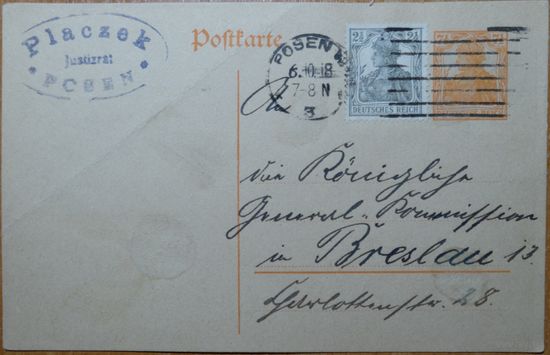 Placzek
Justizrat
POSEN
Postkarte
POSEN
6.10.18
7-8 N
3
2½ 2½
DEUTSCHES REICH
7½ 7½
An
die Königliche
General-Kommission
in Breslau 13.
Charlottenstr. 28.